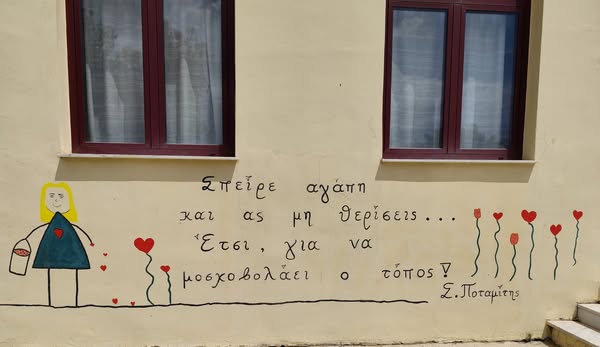 Σπεῖρε αγάπη
και ας μη θερίσεις...
Ἔτσι, για να
μοσχοβολάει ο τόπος!
Σ. Ποταμίτης